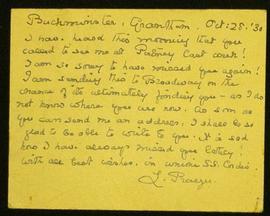 Buckminster, Grantham. Oct: 28. '30
I have heard this morning that you
called to see me at Putney last week!
I am so sorry to have missed you again!
I am sending this to Broadway on the
chance of its ultimately finding you - as I do
not know where you are now. As soon as
you can send me an address, I shall be so
glad to be able to write to you. It is sad
how I have always missed you lately!
With all best wishes, in union S.S. Cordis
L.